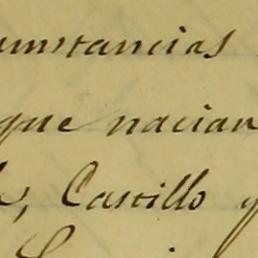 cumstancias
que nacian
, Castillo y